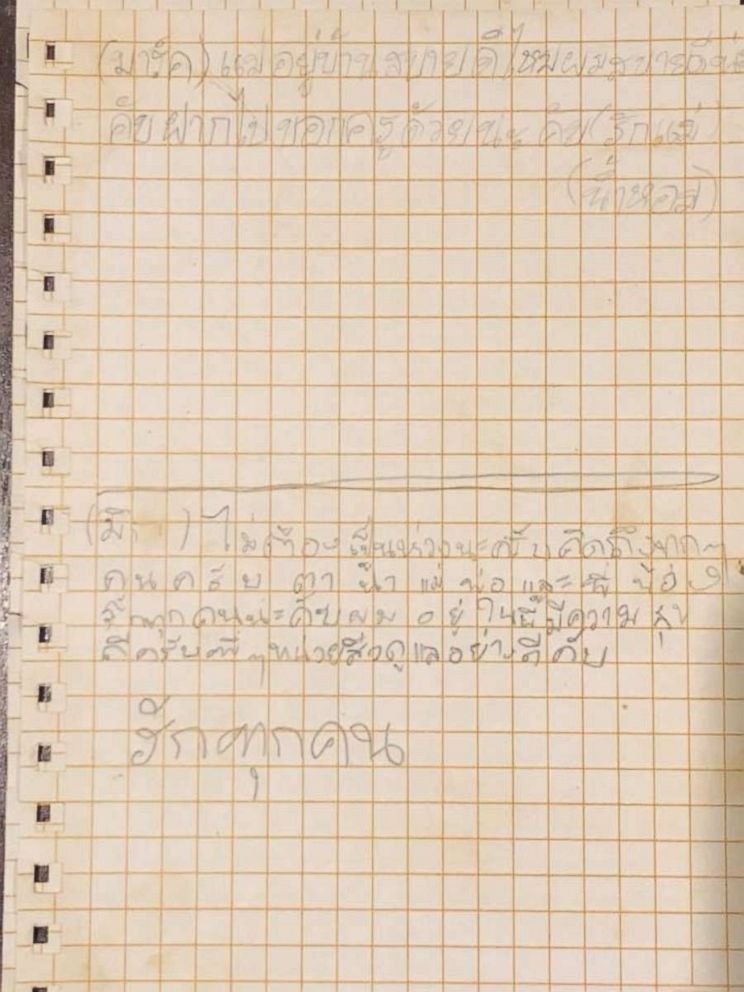 (มาร์ค) แม่อยู่บ้านสบายดีไหมผมสบายดี
คับฝากไปบอกครูด้วยนะ คับ (รักแม่)
(น้ำหอม)
ไม่ต้องเป็นห่วงนะครับคิดถึงทุกๆ
คนครับ ตา ย่า แม่ พ่อ และ พี่ น้อง
รักทุกคนนะคับผม อยู่ในนี้มีความสุข
ดีครับพี่ๆหน่วยซีวดูแลอย่างดีคับ
รักทุกคน